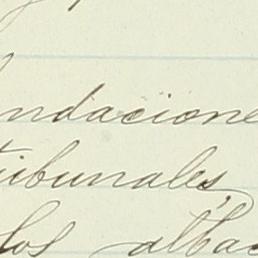 ndacione
ribunales,
los albac